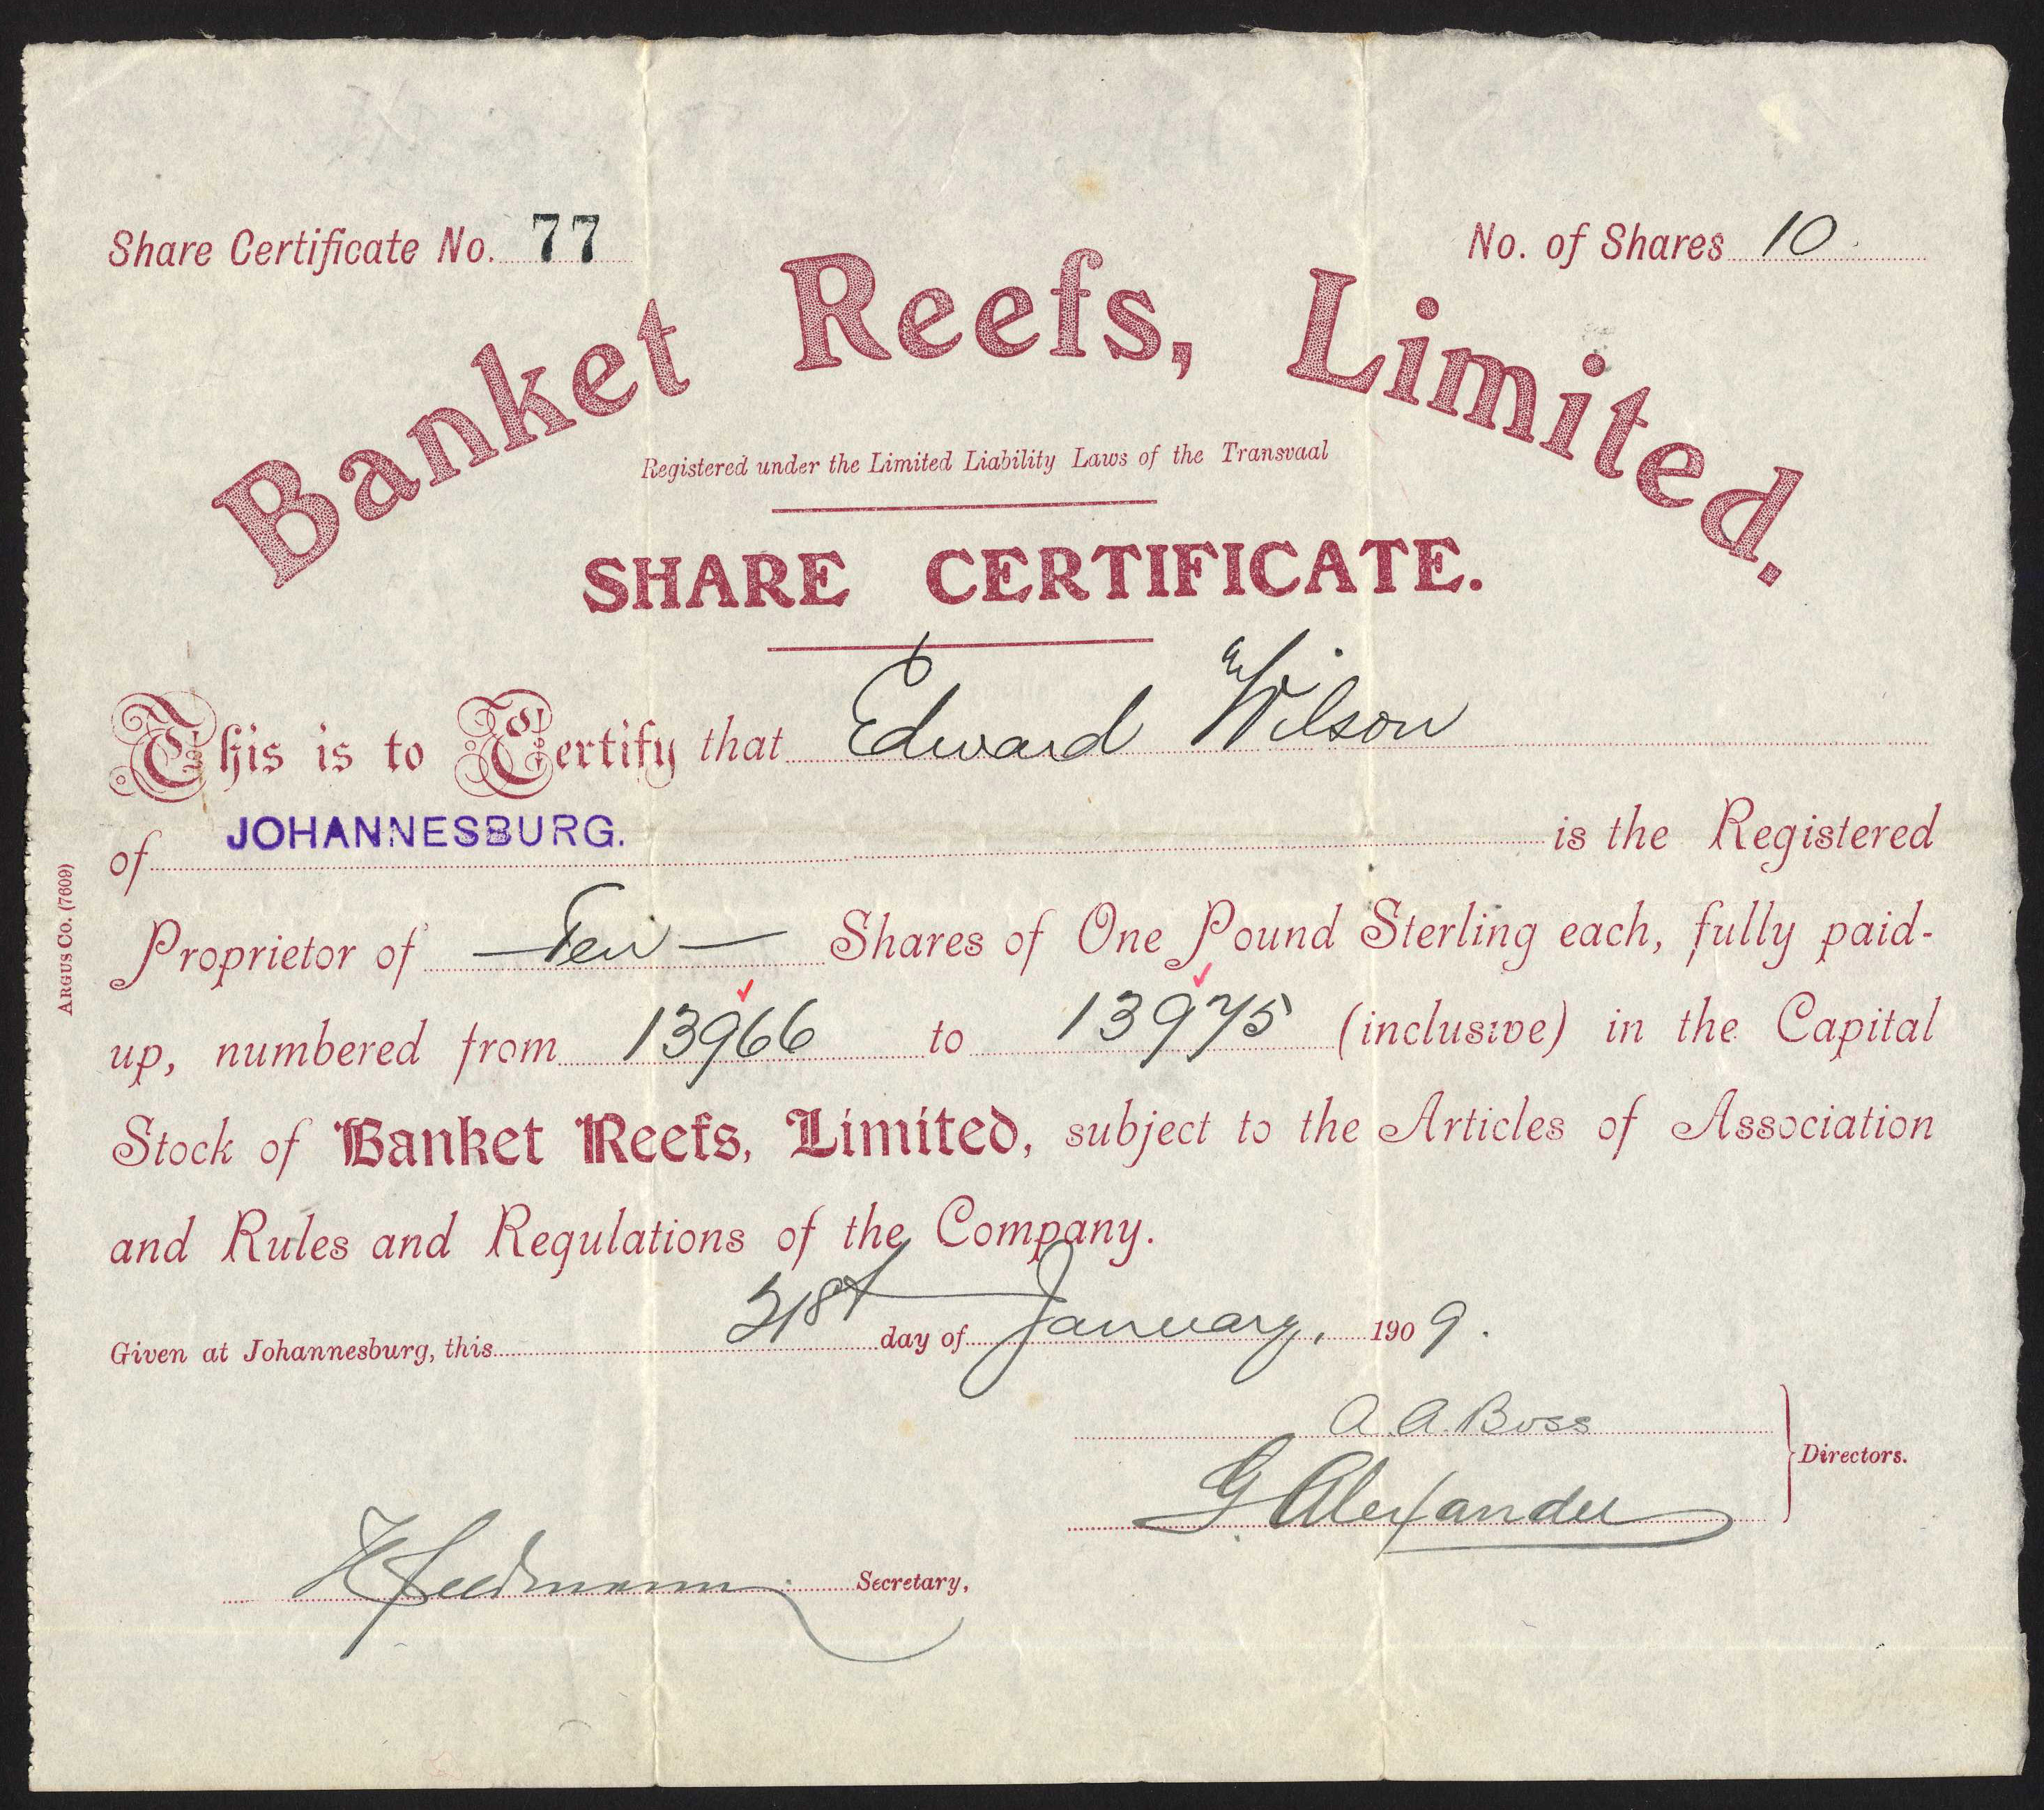 Share Certificate No. 77
No. of Shares 10.
Banket Reefs, Limited.
Registered under the Limited Liability Laws of the Transvaal
SHARE CERTIFICATE.
This is to Certify that Edward Wilson
of JOHANNESBURG. is the Registered
Proprietor of — Ten — Shares of One Pound Sterling each, fully paid-
up, numbered from 13966 to 13975 (inclusive) in the Capital
Stock of Banket Reefs, Limited, subject to the Articles of Association
and Rules and Regulations of the Company.
Given at Johannesburg, this 21st day of January, 1909.
A. A. Boss
G. Alexander
Directors.
Secretary,
ARGUS CO. (7609)